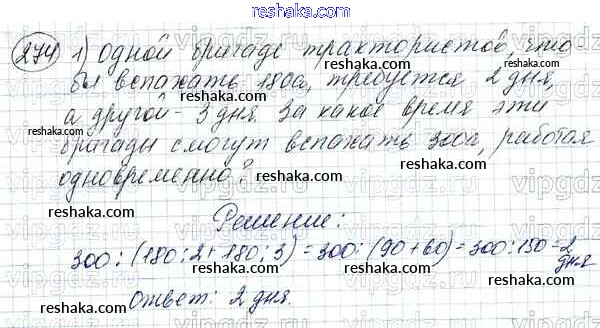 reshaka.com
274 1) Одной бригаде трактористов, что
reshaka.com
бы вспахать 180а, требуется 2 дня,
а другой - 3 дня. За какое время эти
reshaka.com reshaka.com
бригады смогут вспахать 300а, работая
одновременно?
reshaka.com reshaka.com
Решение:
reshaka.com
300 : (180 : 2 + 180 : 3) = 300 : (90 + 60) = 300 : 150 = 2
дня
reshaka.com reshaka.com reshaka.com
Ответ: 2 дня.
reshaka.com
vipgdz.ru